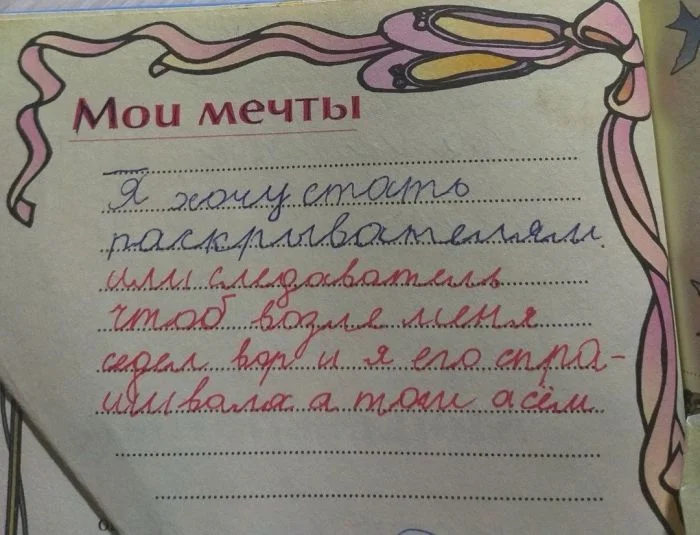 Мои мечты
Я хочу стать
раскрывателям
или следаватель
чтоб возле меня
седел вор и я его спра-
шивала а том а сём